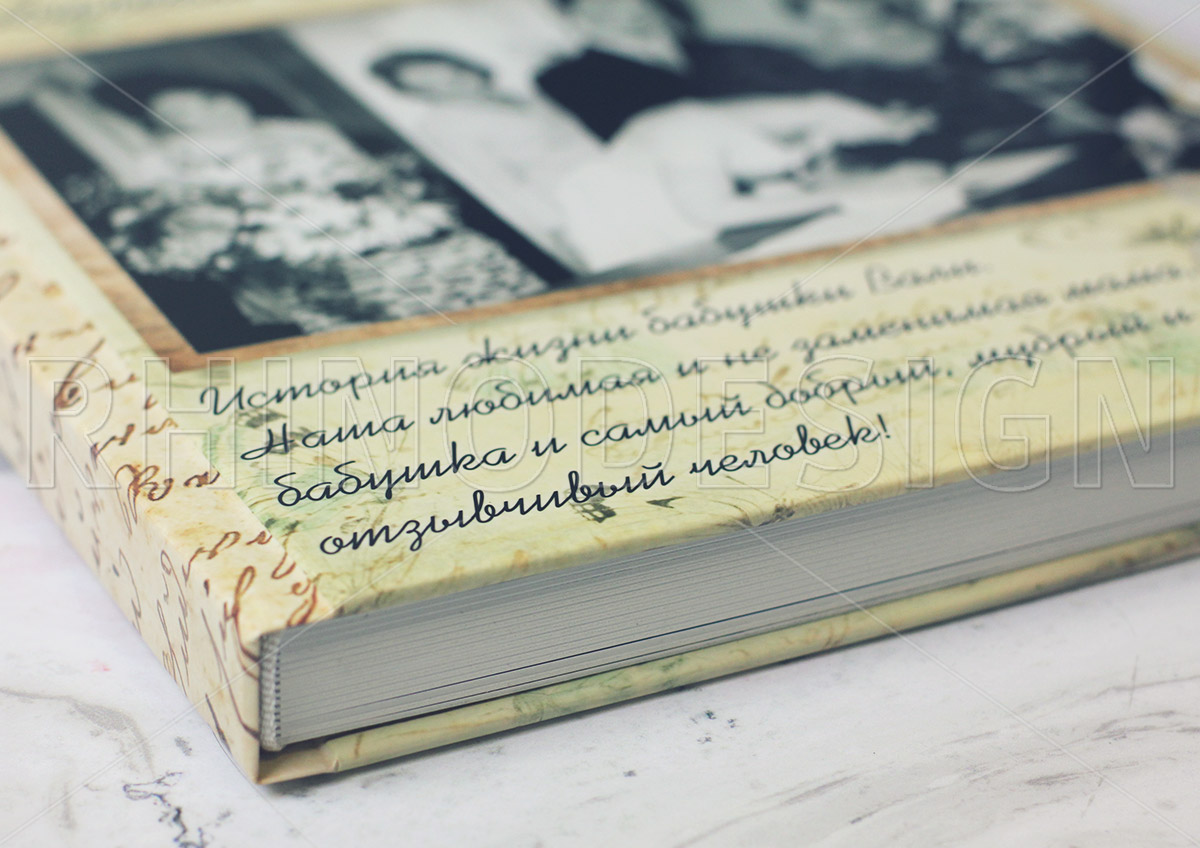 История жизни бабушки Вали.
Наша любимая и не заменимая мама,
бабушка и самый добрый, мудрый и
отзывчивый человек!
RHINODESIGN